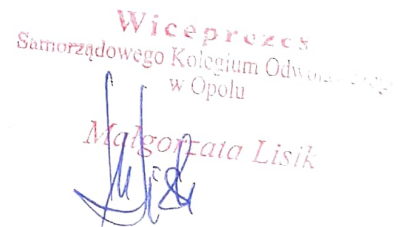 Wiceprezes
Samorządowego Kolegium
w Opolu
Małgorzata Lisik